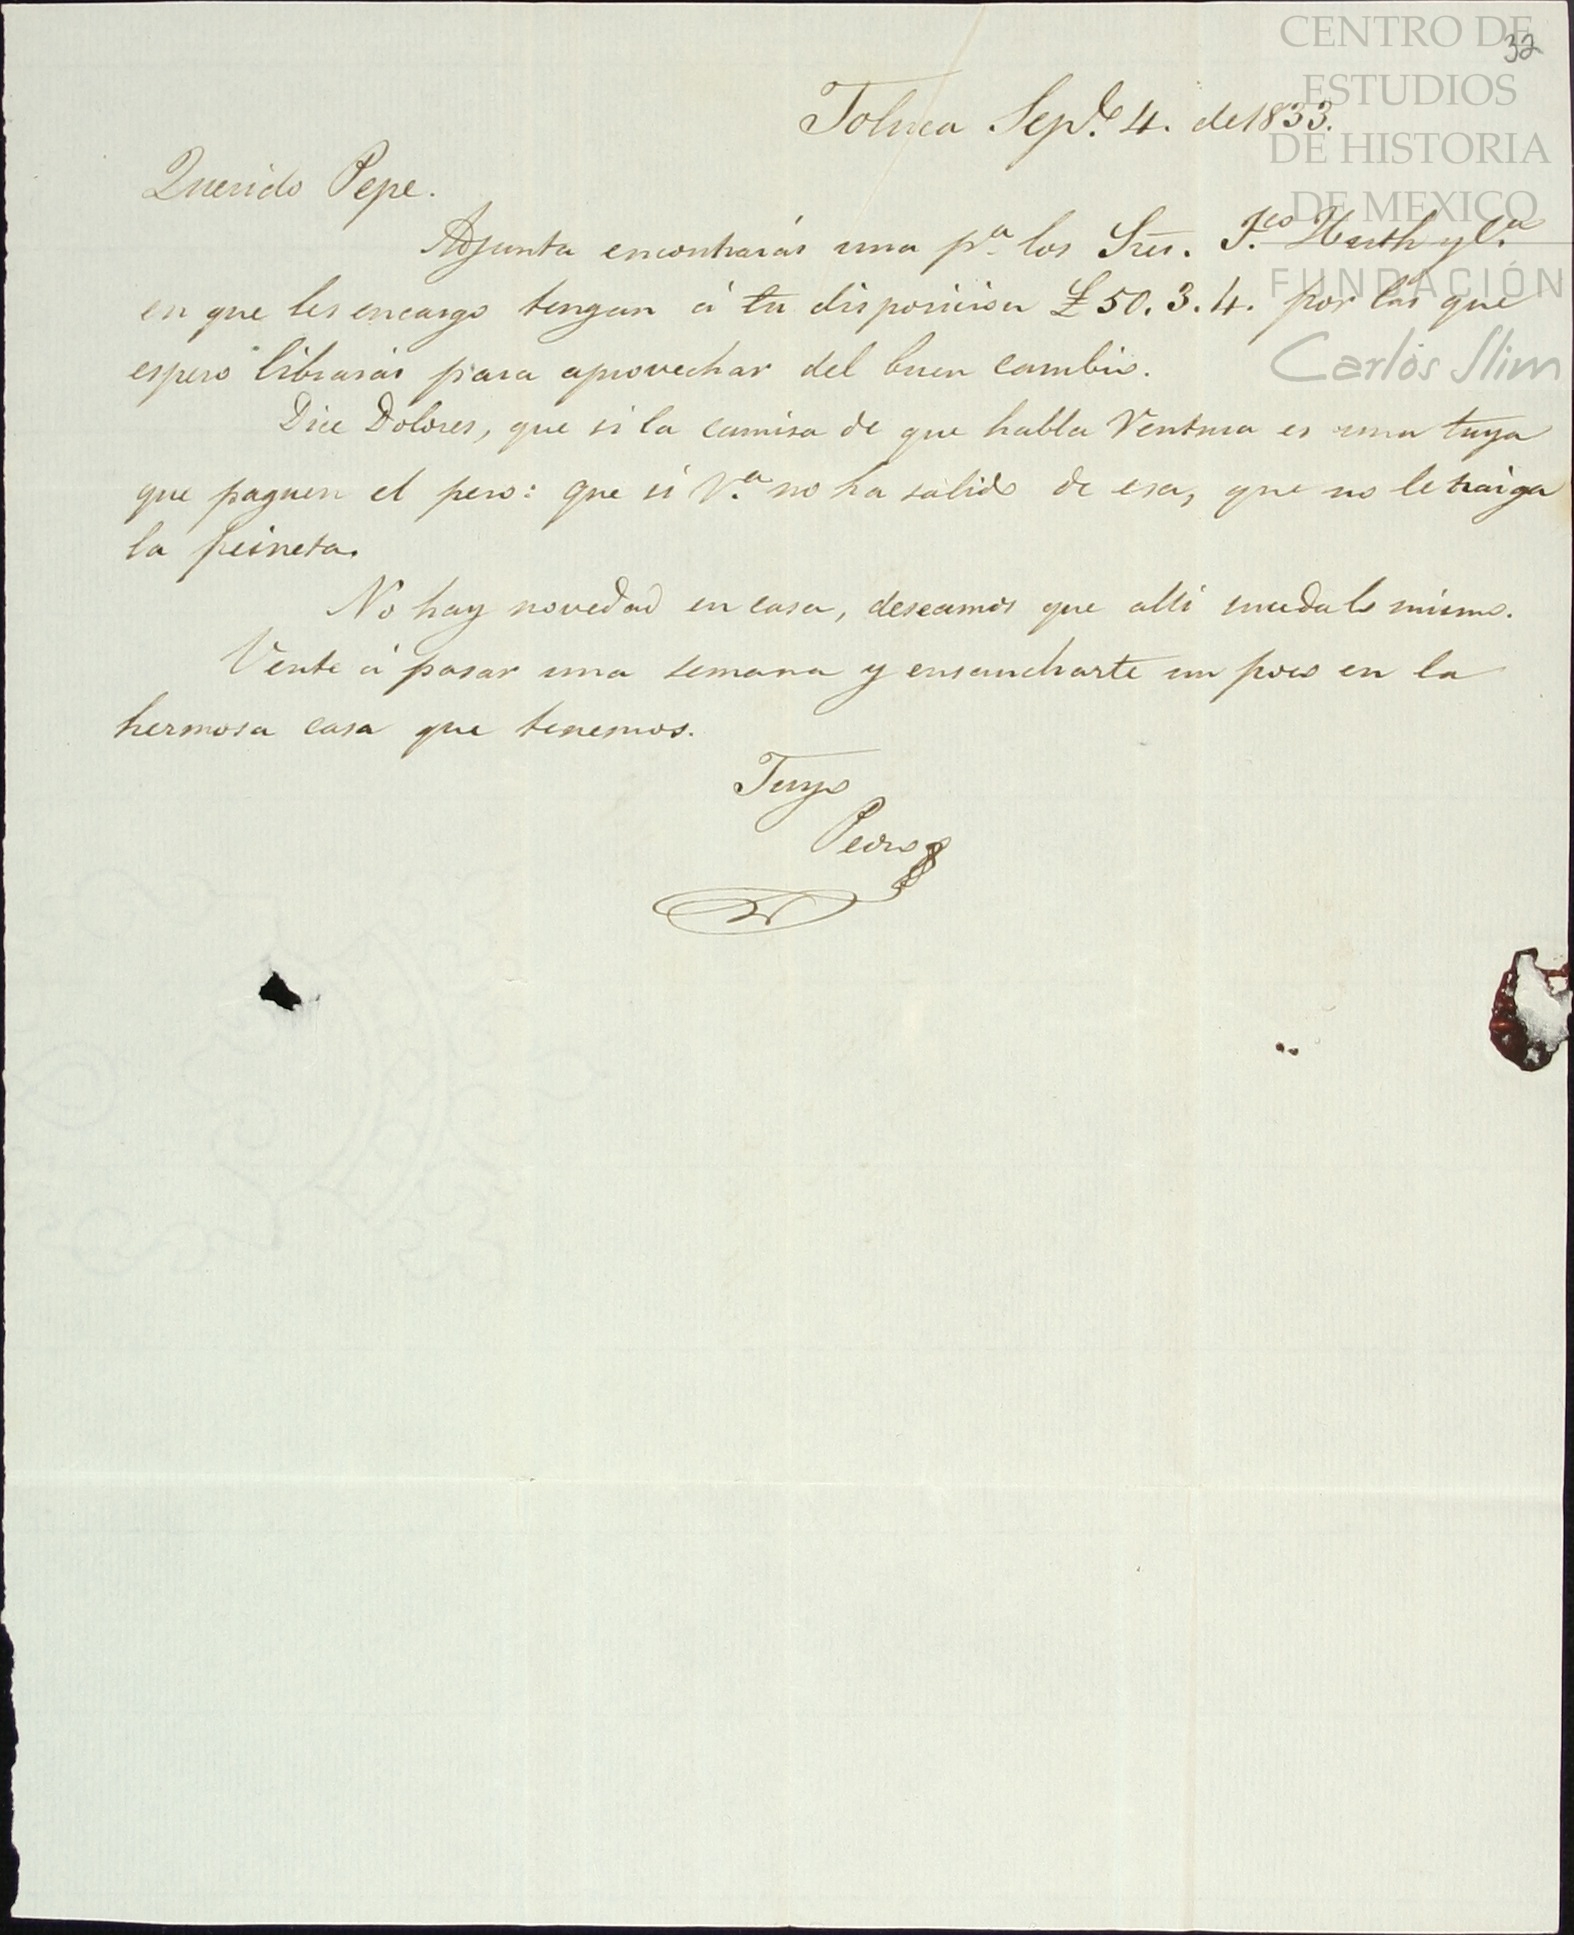 32
CENTRO DE
ESTUDIOS
DE HISTORIA
DE MEXICO
FUNDACIÓN
Carlos Slim
Toluca Sep.e 4. de 1833.
Querido Pepe.
Adjunta encontrarás una p.a los Sres. F.co Huth y C.a
en que les encargo tengan á tu disposicion £ 50. 3. 4. por las que
espero librarás para aprovechar del buen cambio.
Dice Dolores, que si la camisa de que habla Ventura es una tuya
que paguen el peso: que si V.a no ha salido de esa, que no le traiga
la peineta.
No hay novedad en casa, deseamos que alli suceda lo mismo.
Vente á pasar una semana y ensancharte un poco en la
hermosa casa que tenemos.
Tuyo
Pedro